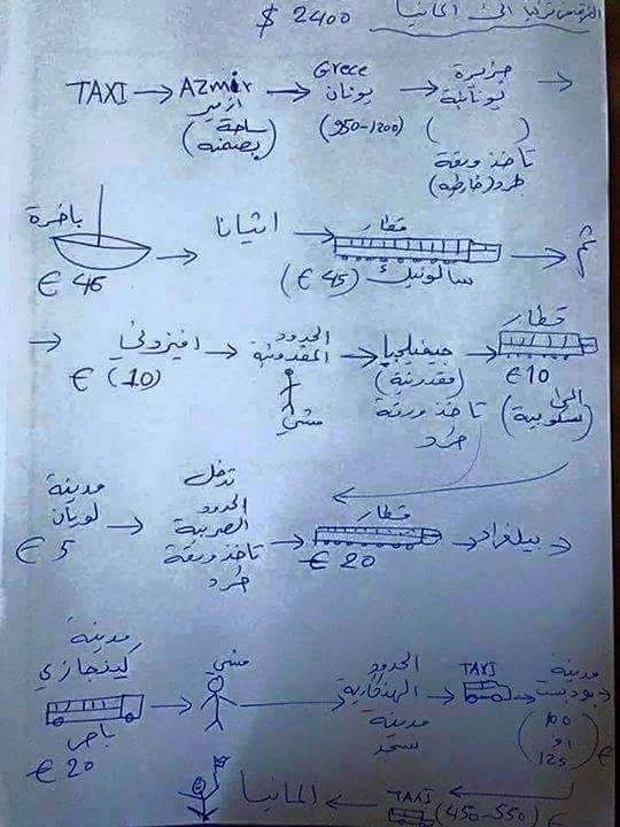 الطريق من تركيا الى المانيا 2400 $
TAXI → AZmir → Grece → جزيرة →
ازمير يونان يونانية
(ساحة بصمنه) (950-1200) ( )
تاخذ ورقة
طرد (خارطه)
باخرة → اثيانا → قطار → ثم
€ 45 (€ 45) سالونيك
→ افيزوني → الحدود المقدونية → جيفيليجيا → قطار
€ (10) مشي (مقدونية) €10
تاخذ ورقة الى
طرد (سكوبية)
مدينة لويان → تدخل الحدود الصربية → قطار → بيلغراد
€ 5 تاخذ ورقة € 20
طرد
مدينة مشي الحدود TAXI مدينة
كينجازي → → الهنغارية → → بودبست
باص مدينة (100 او 125) €
€ 20 سيجد
المانيا ← TAXI (450-550) € ←